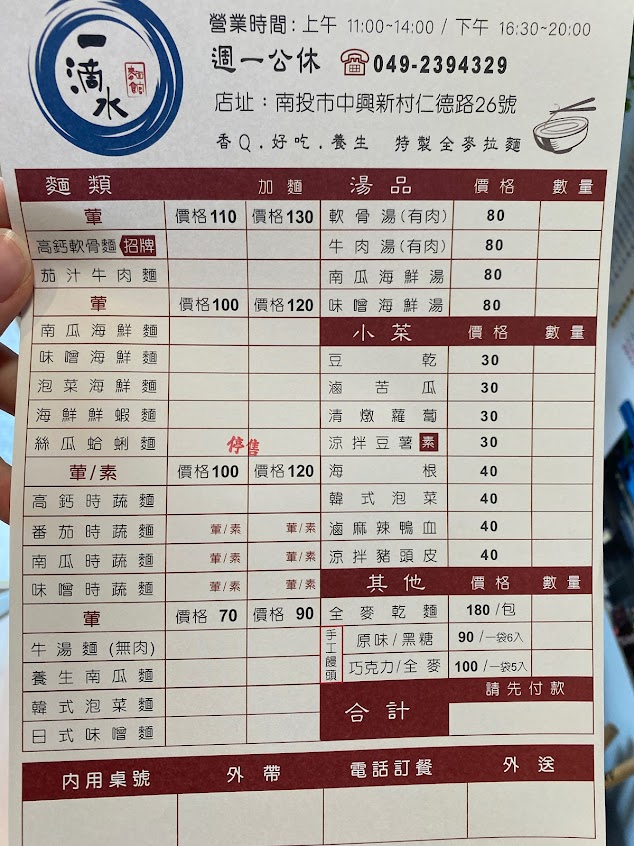 一滴水
麵館
營業時間：上午 11:00~14:00 / 下午 16:30~20:00
週一公休 ☎049-2394329
店址：南投市中興新村仁德路26號
香Q.好吃.養生 特製全麥拉麵
麵類 加麵 湯品 價格 數量
葷 價格110 價格130 軟骨湯(有肉) 80
高鈣軟骨麵 招牌 牛肉湯(有肉) 80
茄汁牛肉麵 南瓜海鮮湯 80
葷 價格100 價格120 味噌海鮮湯 80
南瓜海鮮麵 小菜 價格 數量
味噌海鮮麵 豆乾 30
泡菜海鮮麵 滷苦瓜 30
海鮮鮮蝦麵 清燉蘿蔔 30
絲瓜蛤蜊麵 停售 涼拌豆薯 素 30
葷/素 價格100 價格120 海根 40
高鈣時蔬麵 韓式泡菜 40
番茄時蔬麵 葷/素 葷/素 滷麻辣鴨血 40
南瓜時蔬麵 葷/素 葷/素 涼拌豬頭皮 40
味噌時蔬麵 葷/素 葷/素 其他 價格 數量
葷 價格 70 價格 90 全麥乾麵 180 /包
牛湯麵(無肉) 手工饅頭 原味/黑糖 90 /一袋6入
養生南瓜麵 巧克力/全麥 100 /一袋5入
韓式泡菜麵 合計 請先付款
日式味噌麵
內用桌號 外帶 電話訂餐 外送